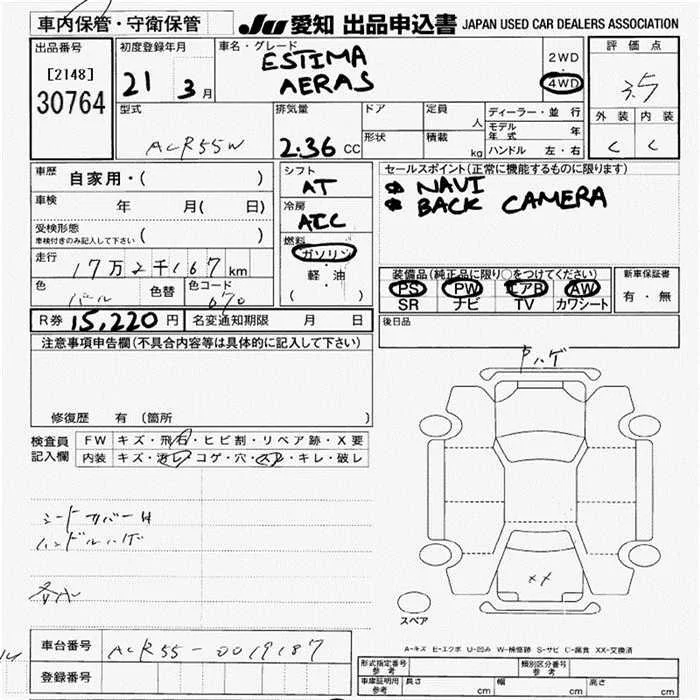 車内保管・守衛保管
JU 愛知 出品申込書 JAPAN USED CAR DEALERS ASSOCIATION
出品番号
[2148]
30764
初度登録年月
21 3 月
車名・グレード
ESTIMA
AERAS
2WD
・
4WD
評価点
3.5
外装 内装
C C
型式
ACR55W
排気量
2.36 CC
ドア
定員
人
形状
積載
kg
ディーラー・並行
モデル年式 年
ハンドル 左・右
車歴
自家用・( )
車検
年 月( 日)
受検形態
車検付きのみ記入して下さい ( )
走行
17万2千167km
色
パール
色替
色コード
070
R券 15,220 円
名変通知期限 月 日
シフト
AT
冷房
AIC
燃料
ガソリン
・
軽・油
( )
セールスポイント(正常に機能するものに限ります)
NAVI
BACK CAMERA
装備品(純正品に限り○をつけてください)
PS PW エアB AW
SR ナビ TV カワシート
新車保証書
有・無
後日品
注意事項申告欄(不具合内容等は具体的に記入して下さい)
修復歴 有 (箇所 )
検査員
記入欄
FW キズ・飛石・ヒビ割・リペア跡・X要
内装 キズ・汚レ・コゲ・穴・スレ・キレ・破レ
シートカバーH
ハンドルハゲ
ハゲ
××
スペア
A-キズ E-エクボ U-凹み W-補修跡 S-サビ C-腐食 XX-交換済
車台番号 ACR55-0019187
登録番号
形式指定番号
参考
類別区分番号
参考
車庫証明用
参考
長さ cm
幅 cm
高さ cm